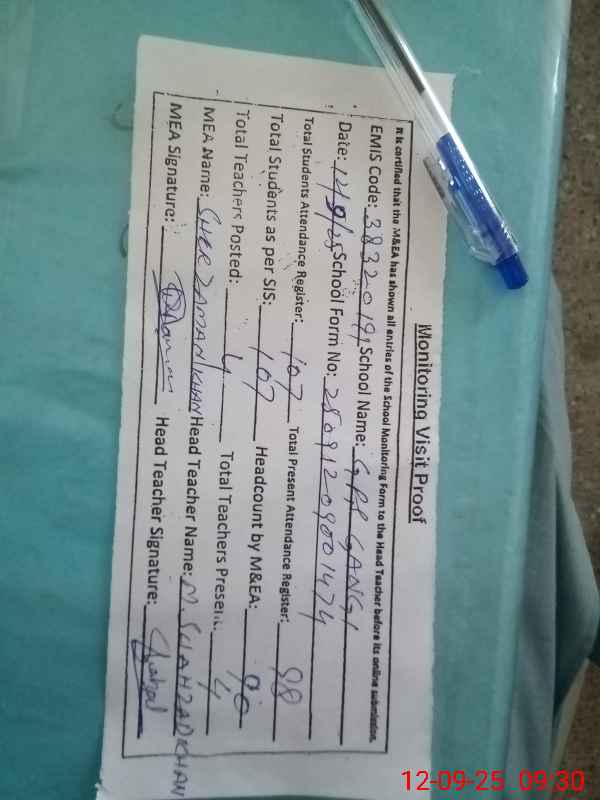 Monitoring Visit Proof
It is certified that the M&EA has shown all entries of the School Monitoring Form to the Head Teacher before its online submission.
EMIS Code: 38320191 School Name: GPS GANGI
Date: 12/9/25 School Form No: 25091209001474
Total Students Attendance Register: 107 Total Present Attendance Register: 98
Total Students as per SIS: 107 Headcount by M&EA: 90
Total Teachers Posted: 4 Total Teachers Present: 4
MEA Name: SHER ZAMAN KHAN Head Teacher Name: M. SHAHZAD KHAN
MEA Signature: Head Teacher Signature:
12-09-25 09:30